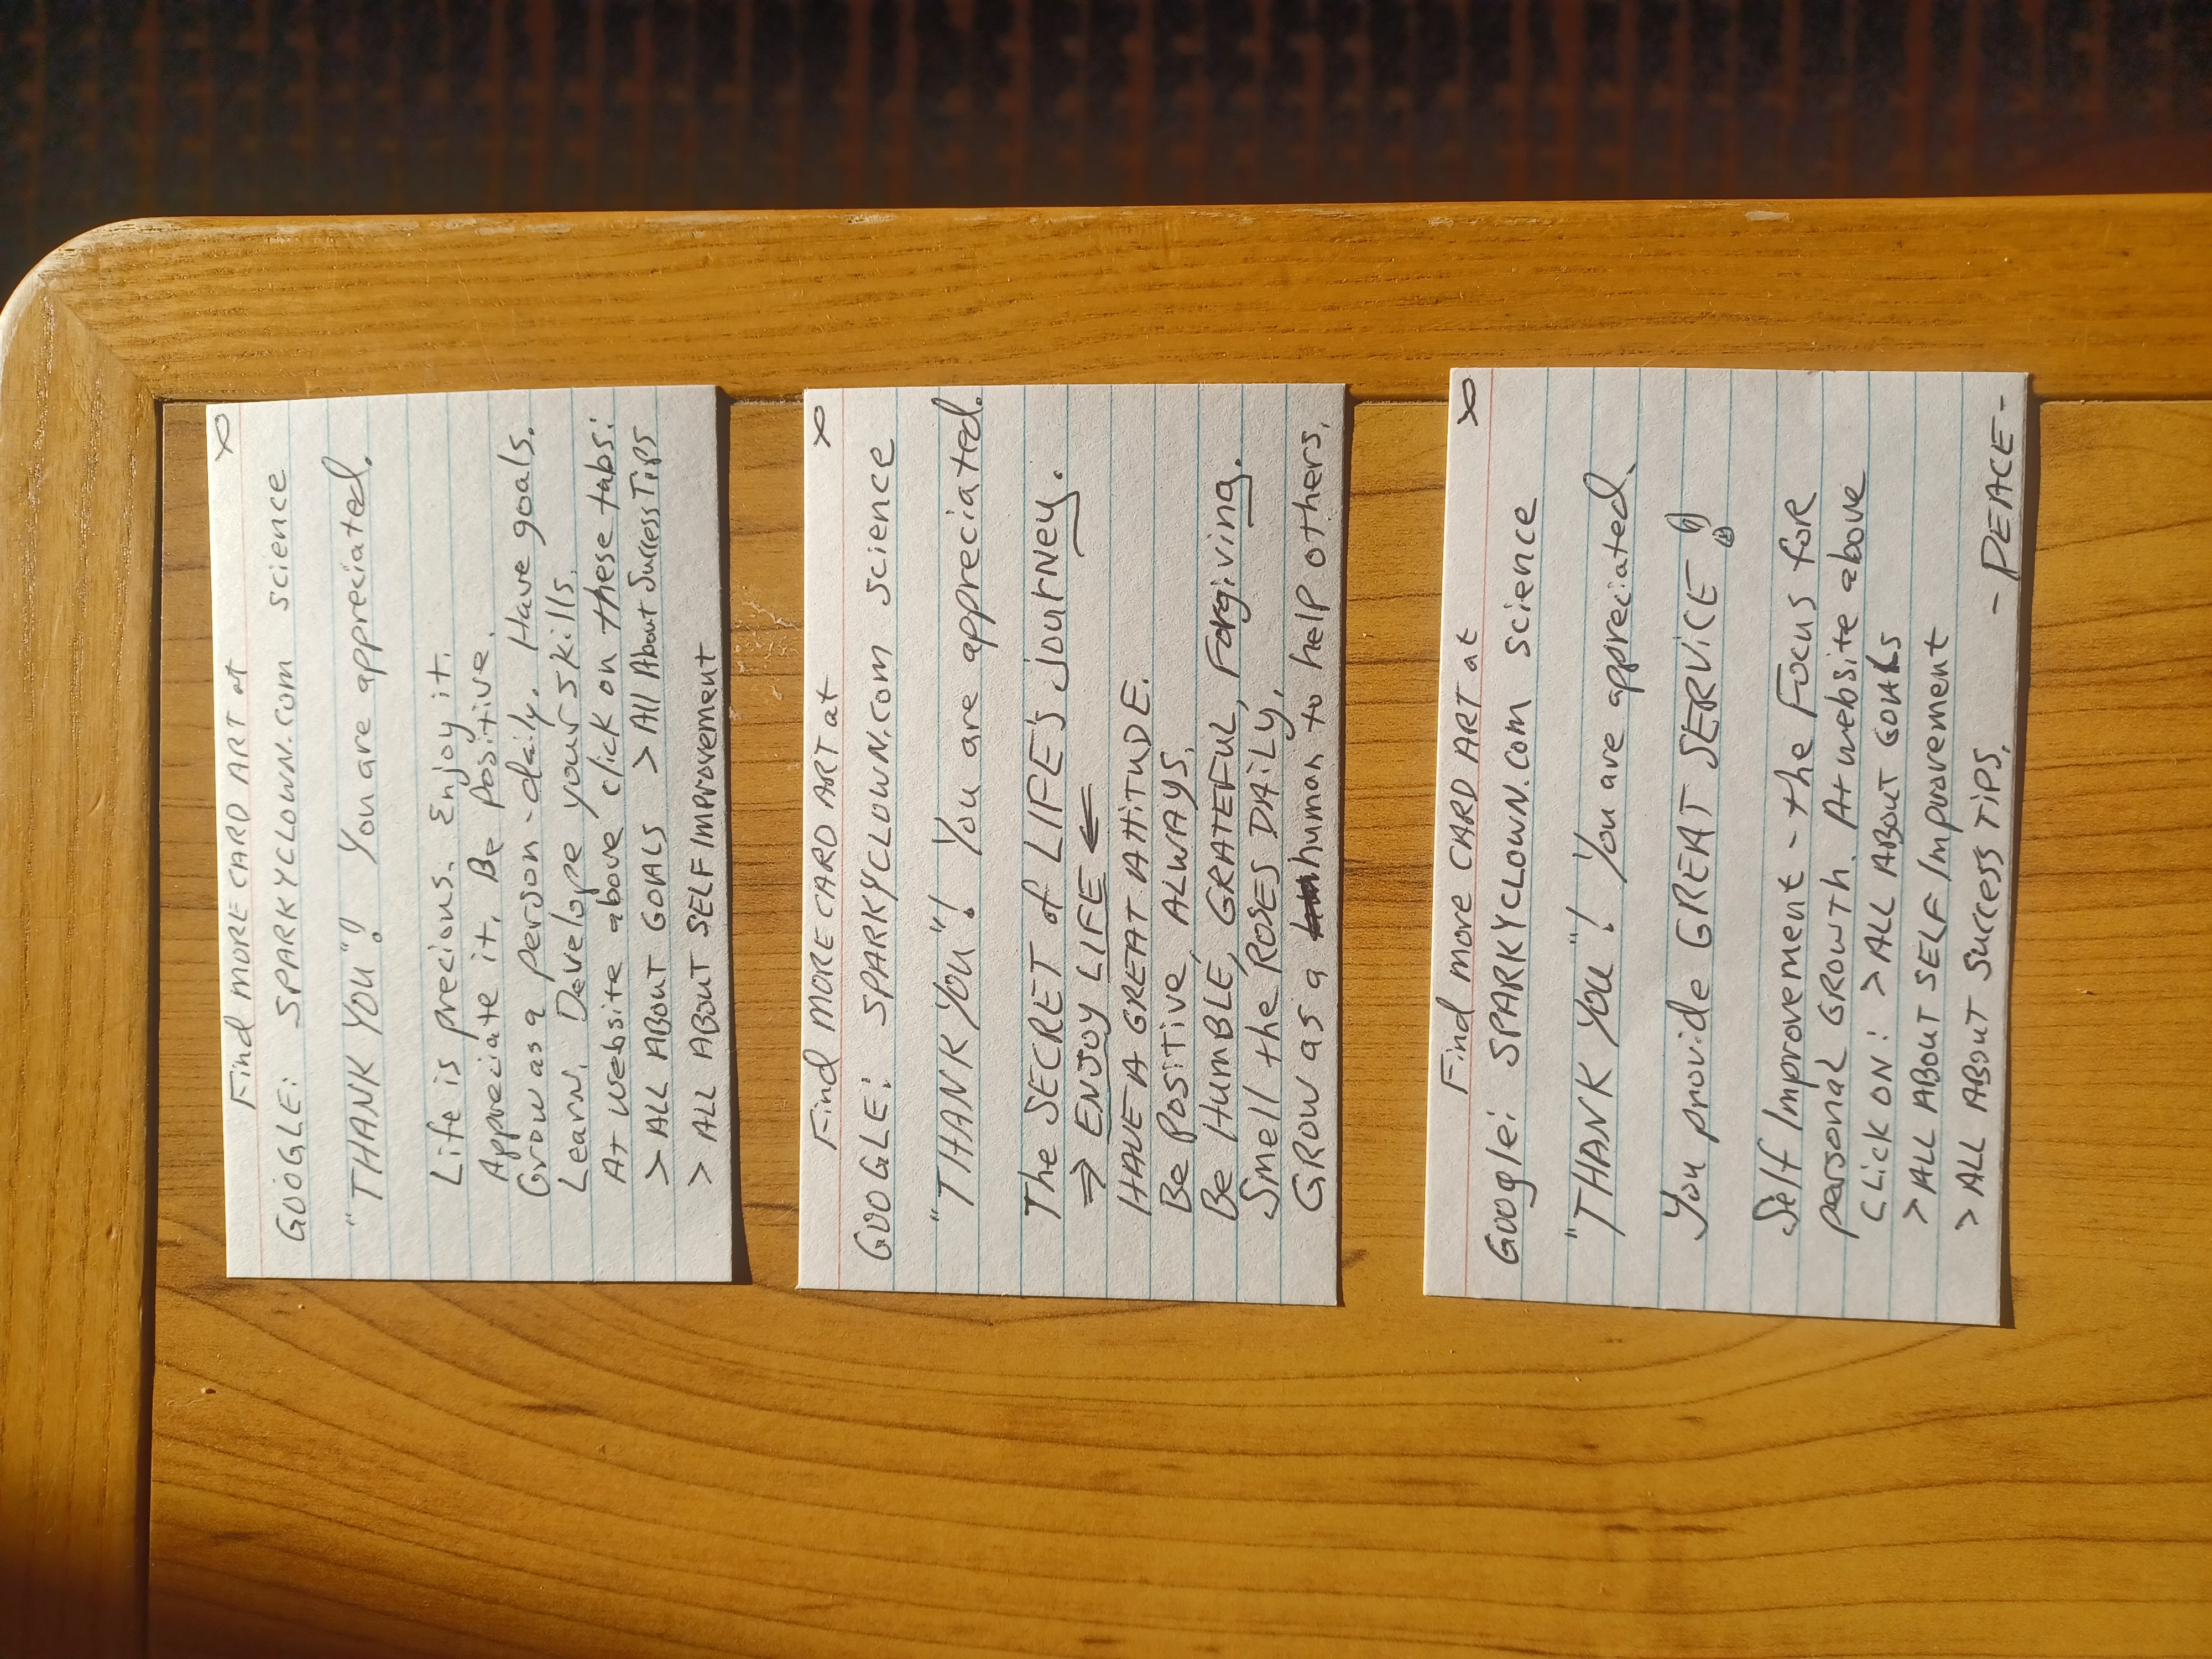 Find MORE CARD ART at
GOOGLE: SPARKYCLOWN.com science
"THANK YOU"! You are appreciated.
Life is precious. Enjoy it.
Appreciate it. Be positive.
Grow as a person - daily. Have goals.
Learn. Develope your skills.
At website above click on these tabs:
> ALL ABOUT GOALS > All About Success Tips
> ALL ABOUT SELF IMProvement
Find MORE CARD ART at
GOOGLE: SPARKYCLOWN.com science
"THANK YOU"! You are appreciated.
The SECRET of LIFE's journey.
⇒ ENJOY LIFE ⇐
HAVE A GREAT AttiTUDE.
Be Positive, ALWAYS.
Be HumBLE, GRATEFUL, Forgiving.
Smell the ROSES DAILY.
GROW as a human to help others.
Find more CARD ART at
Google: SPARKYCLOWN.com science
"THANK YOU"! You are appreciated.
You provide GREAT SERVICE!
Self Improvement - the Focus for
personal GROWTH. At website above
CLick ON: > ALL ABOUT GOALS
> ALL ABOUT SELF Improvement
> ALL ABOUT Success TIPS. - PEACE -